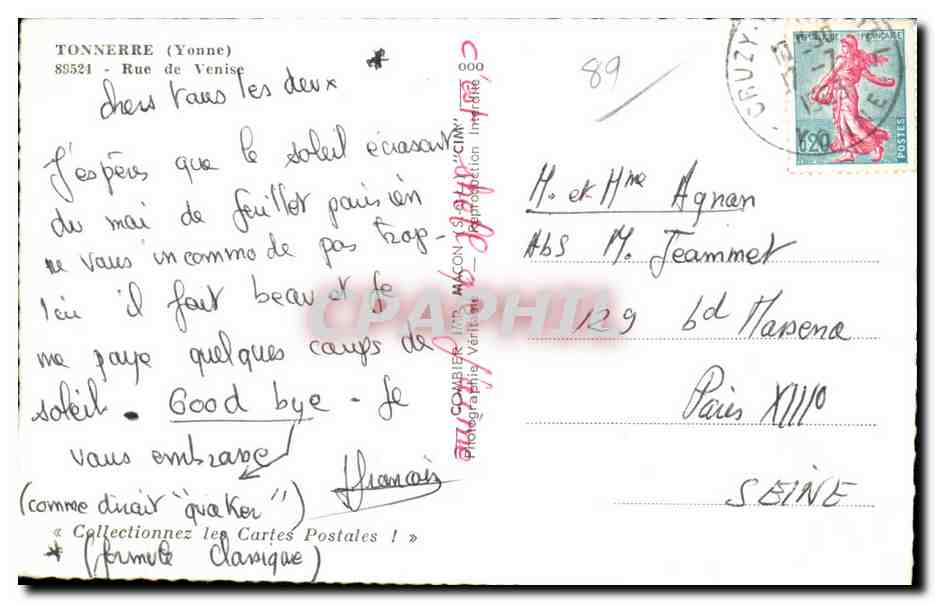 TONNERRE (Yonne)
89524 - Rue de Venise
*
chers vous les deux
J'espère que le soleil écrasant
du mai de feuillet parisien
ne vous incommode pas trop -
Ici il fait beau et je
me paye quelques coups de
soleil. Good bye - Je
vous embrasse
François
(comme dirait "quaker")
« Collectionnez les Cartes Postales ! »
* (formule classique)
000
COMBIER IMP. MACON (S.-&-L.) "CIM"
Photographie Véritable - Reproduction Interdite
CPAPHIL
89
CRUZY
FRANÇAISE
0,20
POSTES
M. et Mme Agnan
Abs M. Jeammet
129 bd Massena
Paris XIII°
SEINE